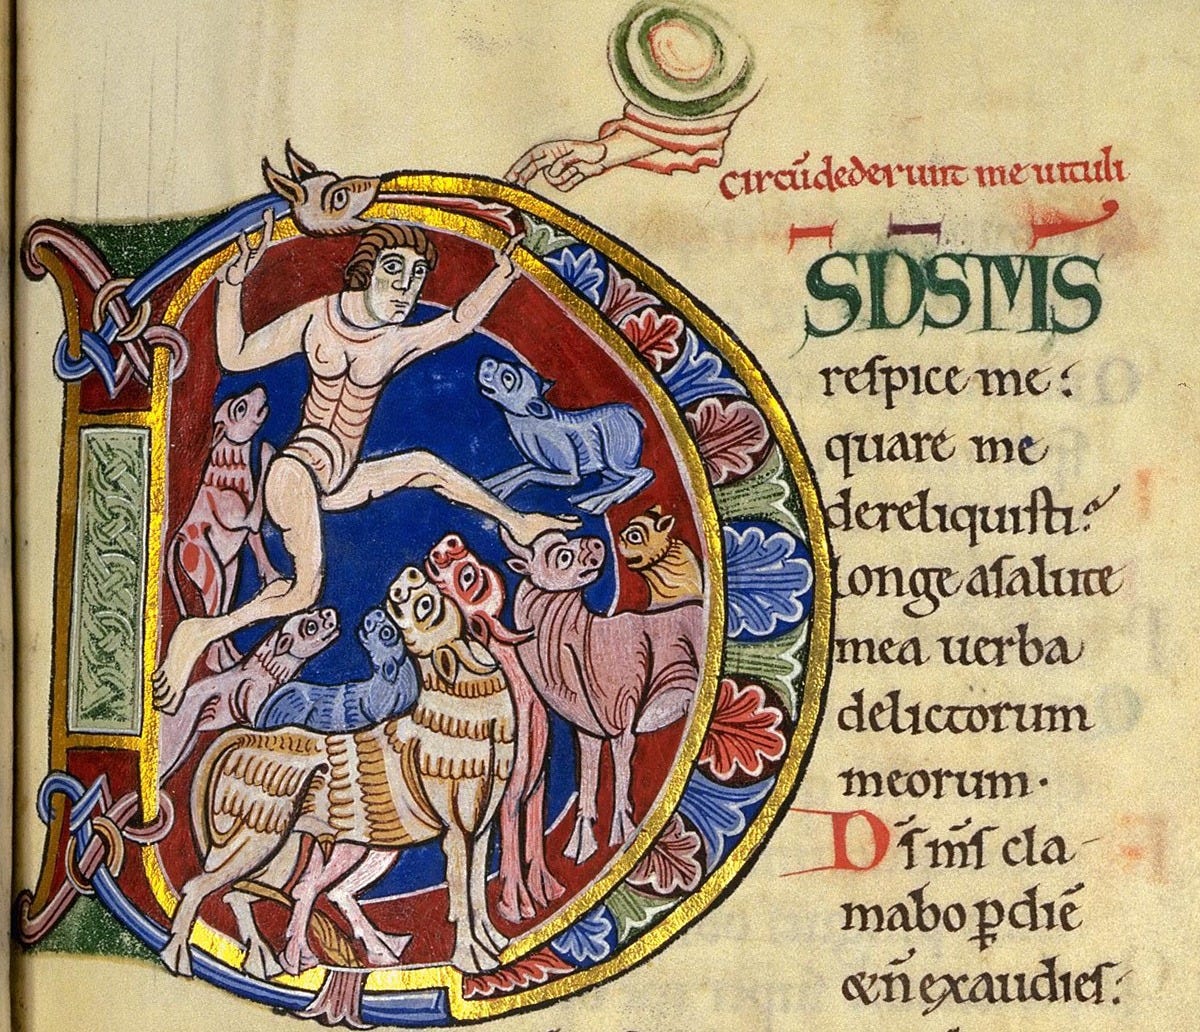 circū dederunt me uituli
D̅S D̅S M̅S
respice me:
quare me
dereliquisti?
longe a salute
mea uerba
delictorum
meorum·
D̄s m̄s cla
mabo p̱ diē
& n̄ exaudies: